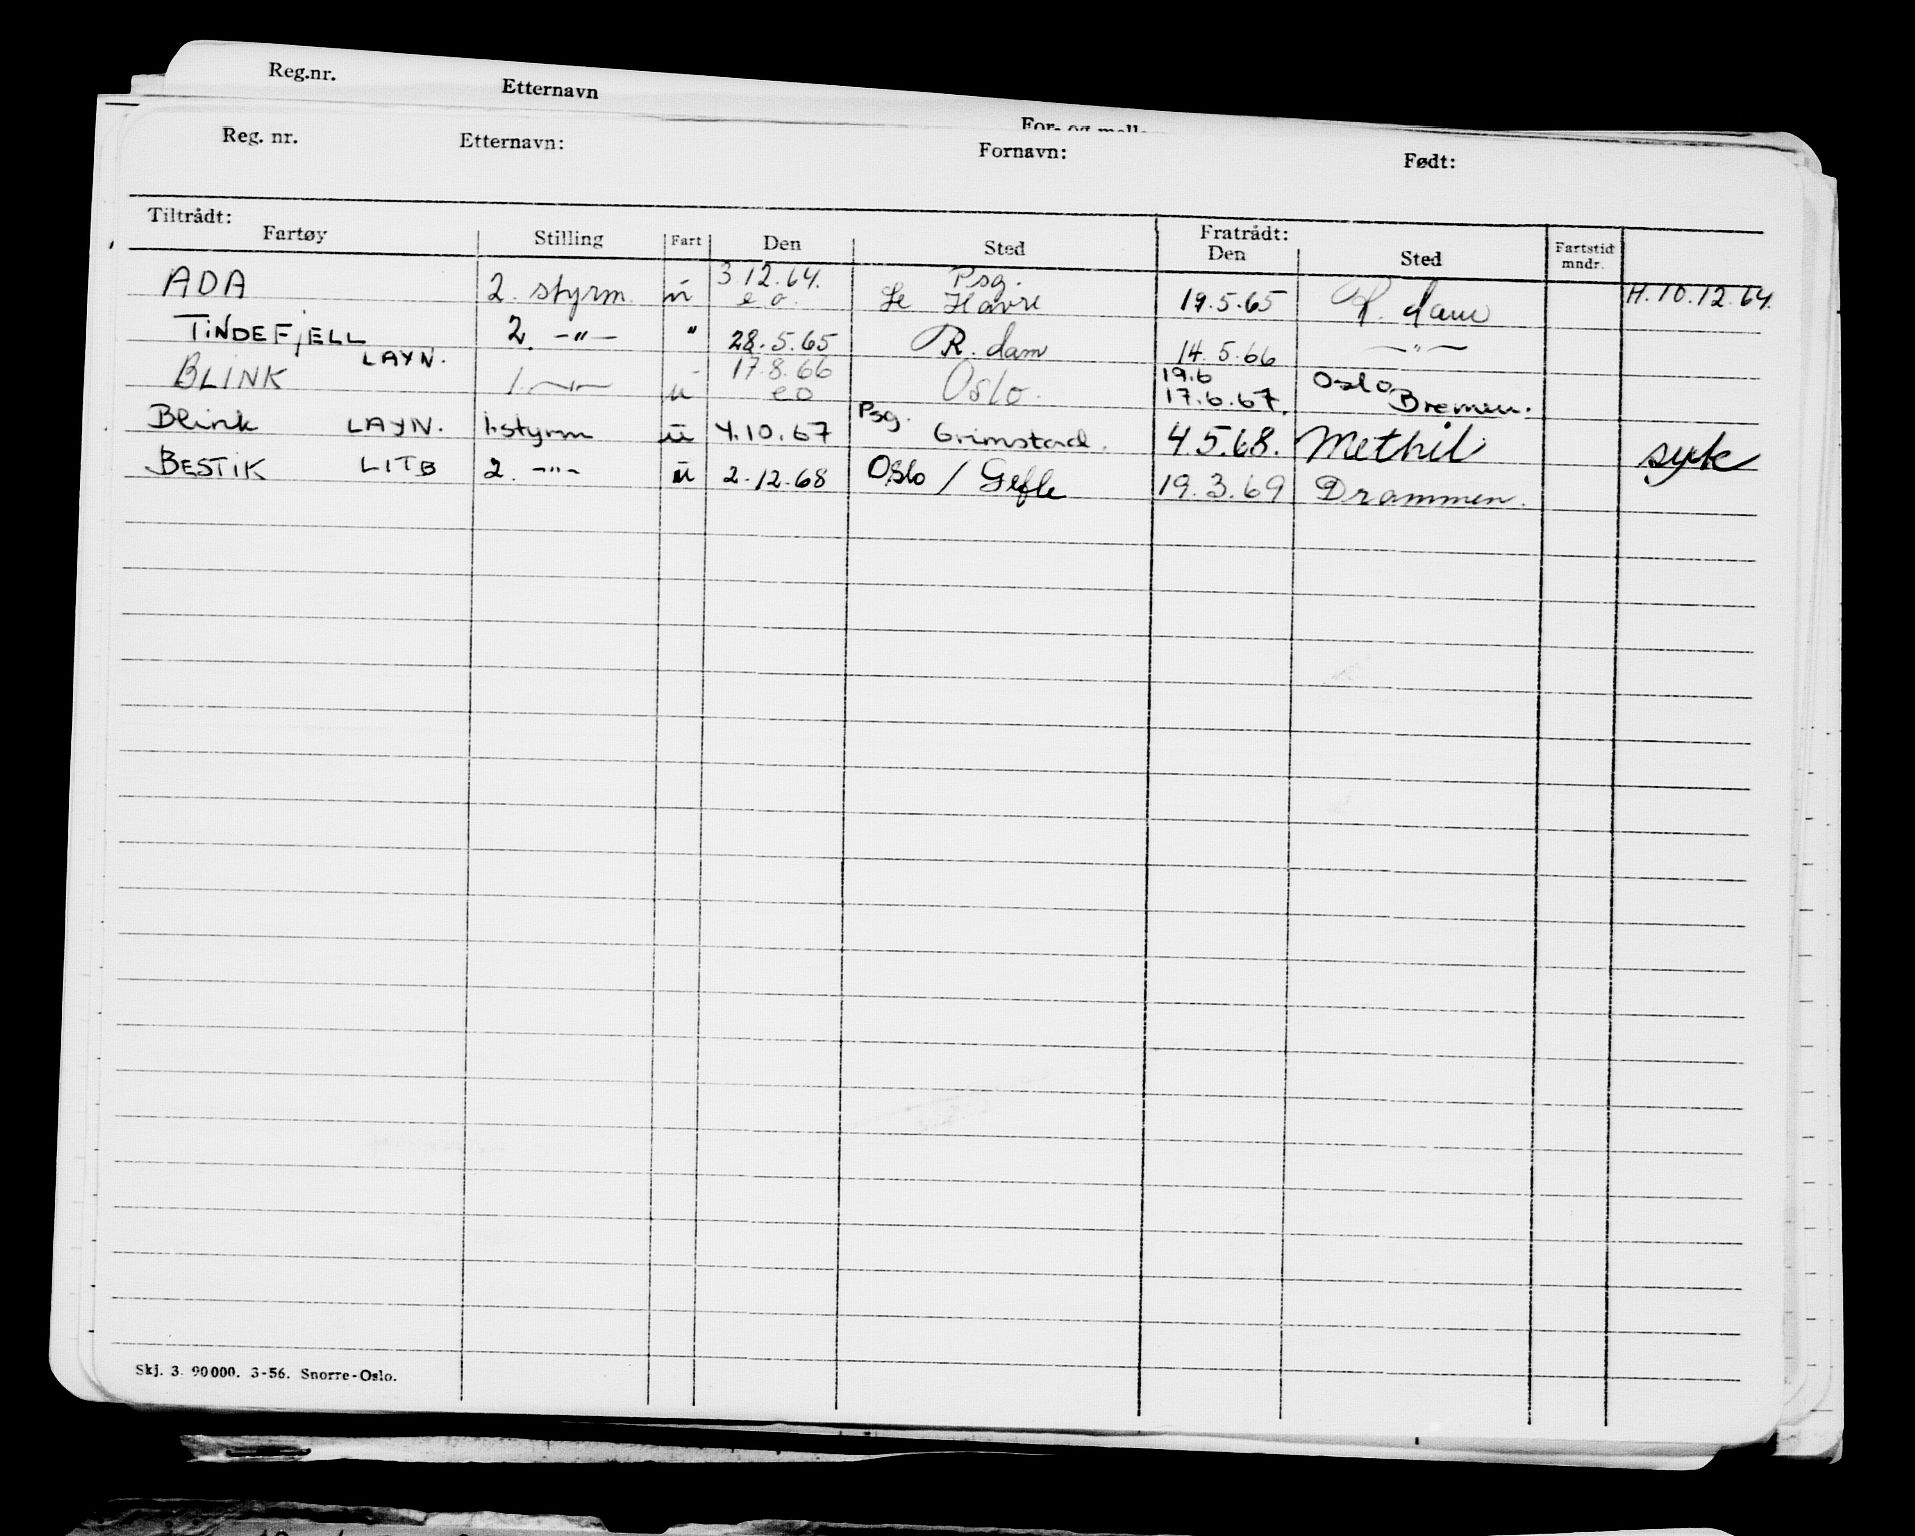 Reg.nr. Etternavn
Reg. nr. Etternavn: Fornavn: Født:
Tiltrådt: Fratrådt:
Fartøy Stilling Fart Den Sted Den Sted Fartstid mndr.
ADA 2. styrm. ü 3.12.64. e.o. Psg. Le Havre 19.5.65 R. dam H.10.12.64.
TINDEFJELL 2. -"- " 28.5.65 R. dam 14.5.66 -"-
BLINK LAYN. 1. -"- ü 17.8.66 eo Oslo. 19.6 17.6.67. Oslo Bremen.
Blink LAYN. 1.styrm ü 4.10.67 Psg. Grimstad. 4.5.68. Methil syk
BESTIK LITB 2. -"- ü 2.12.68 Oslo / Gefle 19.3.69 Drammen.
Skj. 3. 90000. 3-56. Snorre-Oslo.